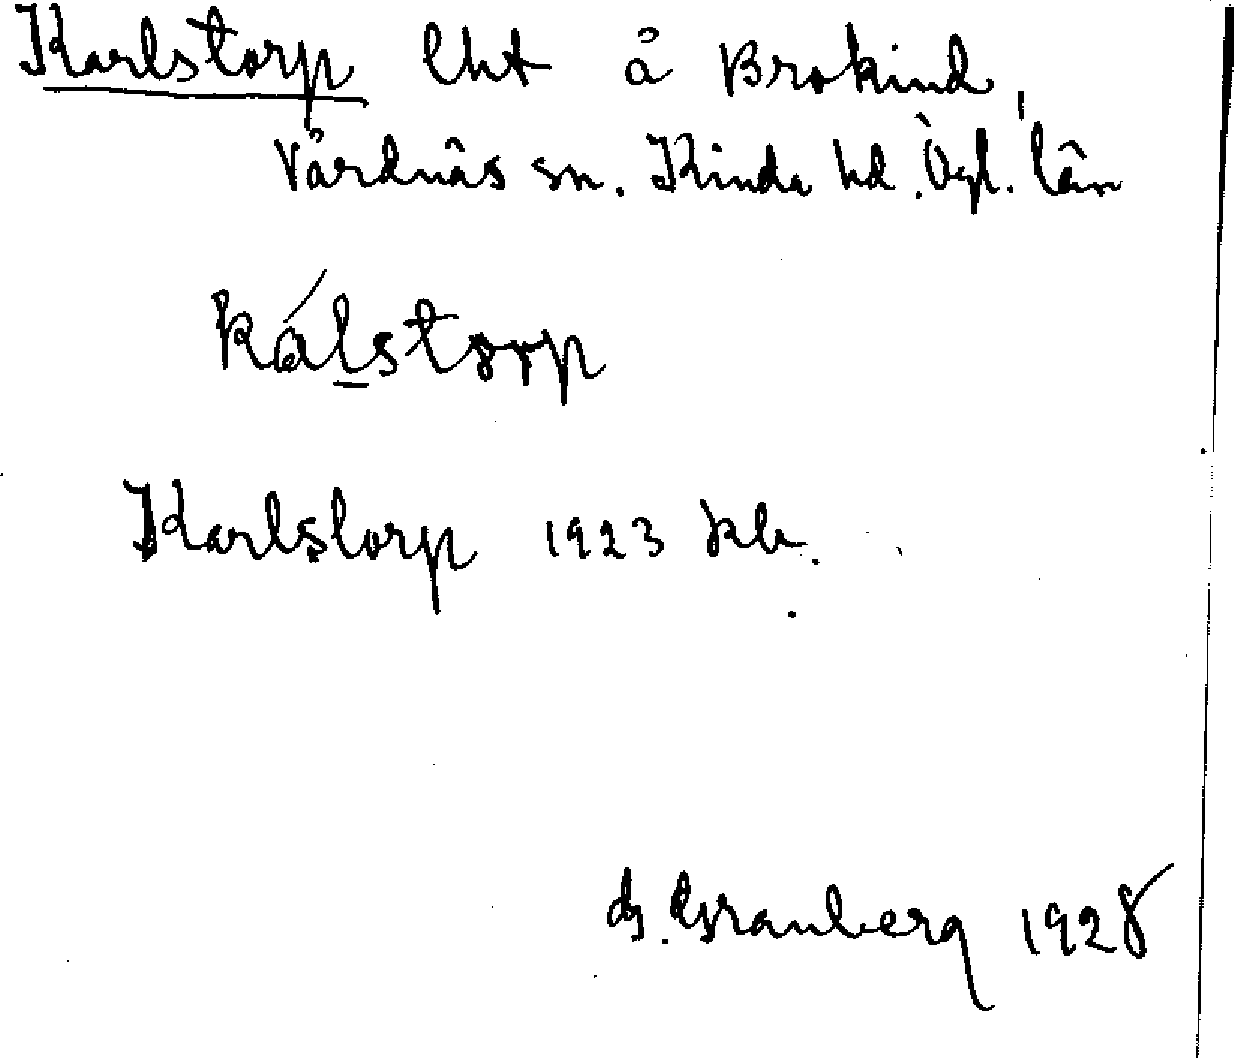 Karlstorp lht å Brokind,
Vårdnäs sn. Kinda hd. Ögl. län
kálstorp
Karlstorp 1923 kb.
G. Granberg 1928